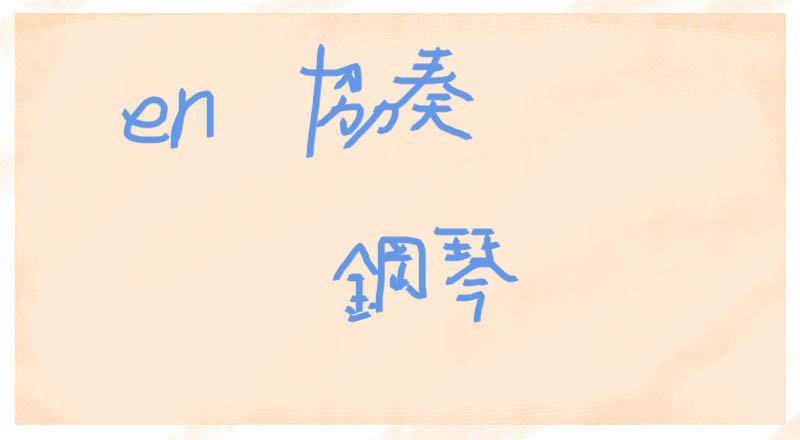 en 協奏
鋼琴